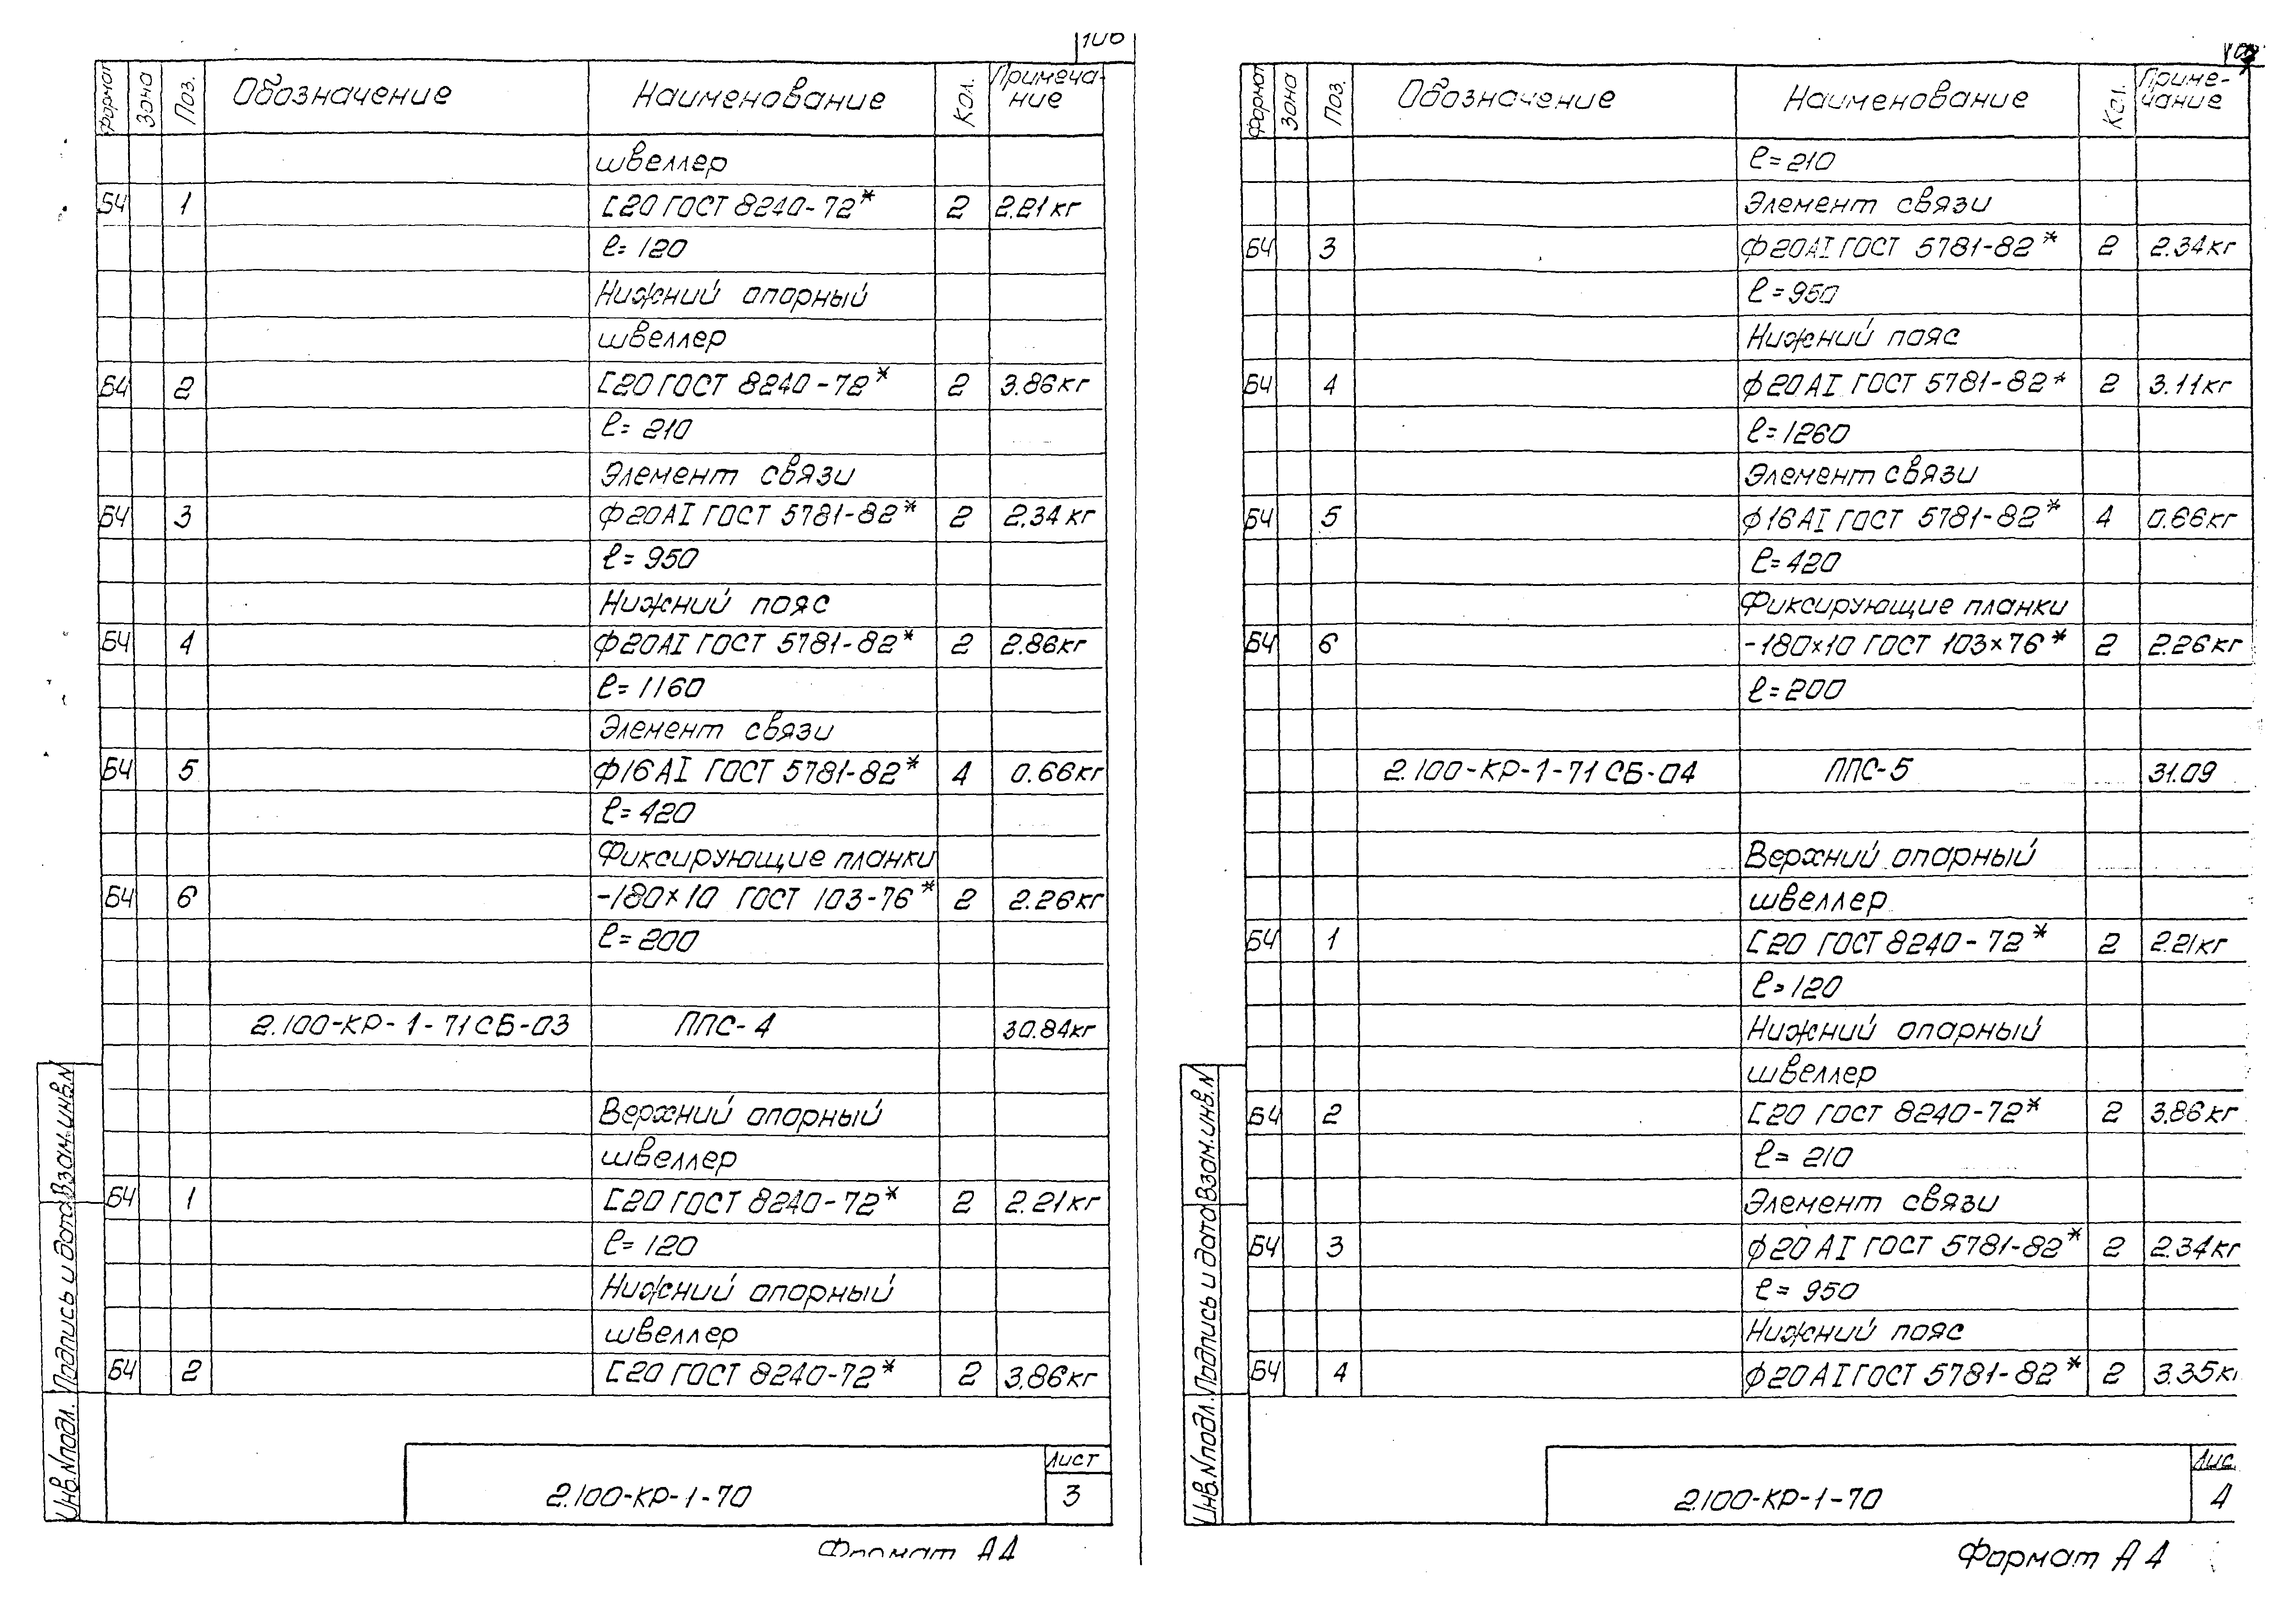 106
Формат Зона Поз. Обозначение Наименование Кол. Примеча-
ние
швеллер
БЧ 1 [20 ГОСТ 8240-72* 2 2.21кг
ℓ= 120
Нижний опорный
швеллер
БЧ 2 [20 ГОСТ 8240-72* 2 3.86кг
ℓ= 210
Элемент связи
БЧ 3 ф20АI ГОСТ 5781-82* 2 2.34кг
ℓ= 950
Нижний пояс
БЧ 4 ф20АI ГОСТ 5781-82* 2 2.86кг
ℓ= 1160
Элемент связи
БЧ 5 ф16АI ГОСТ 5781-82* 4 0.66кг
ℓ= 420
Фиксирующие планки
БЧ 6 -180×10 ГОСТ 103-76* 2 2.26кг
ℓ= 200
2.100-КР-1-71СБ-03 ППС-4 30.84кг
Верхний опорный
швеллер
БЧ 1 [20 ГОСТ 8240-72* 2 2.21кг
ℓ= 120
Нижний опорный
швеллер
БЧ 2 [20 ГОСТ 8240-72* 2 3.86кг
Инв.Nподл. Подпись и дата Взам.инв.N
2.100-КР-1-70
Лист
3
Формат А4
Формат Зона Поз. Обозначение Наименование Кол. Приме-
чание
ℓ= 210
Элемент связи
БЧ 3 ф20АI ГОСТ 5781-82* 2 2.34кг
ℓ=950
Нижний пояс
БЧ 4 ф20АI ГОСТ 5781-82* 2 3.11кг
ℓ=1260
Элемент связи
БЧ 5 ф16АI ГОСТ 5781-82* 4 0.66кг
ℓ=420
Фиксирующие планки
БЧ 6 -180×10 ГОСТ 103×76* 2 2.26кг
ℓ=200
2.100-КР-1-71СБ-04 ППС-5 31.09
Верхний опорный
швеллер
БЧ 1 [20 ГОСТ 8240-72* 2 2.21кг
ℓ=120
Нижний опорный
швеллер
БЧ 2 [20 ГОСТ 8240-72* 2 3.86кг
ℓ= 210
Элемент связи
БЧ 3 ф20АI ГОСТ 5781-82* 2 2.34кг
ℓ= 950
Нижний пояс
БЧ 4 ф20АIГОСТ 5781-82* 2 3.35к
Инв.Nподл. Подпись и дата Взам.инв.N
2.100-КР-1-70
Лис
4
Формат А4